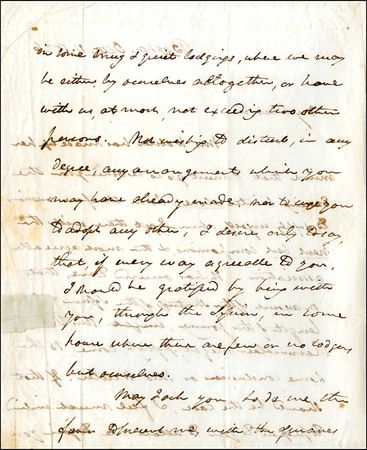 in some snug & quiet lodgings, where we may
be either by ourselves altogether, or have
with us, at most, not exceeding two other
persons. Not wishing to disturb, in any
degree, any arrangements which you
may have already made, nor to urge you
to adopt any other, I desire only to say,
that if every way agreeable to you,
I should be gratified by being with
you, through the Session, in some
house where there are few or no lodgers
but ourselves.
May I ask you to do me the
favor to present me, with the